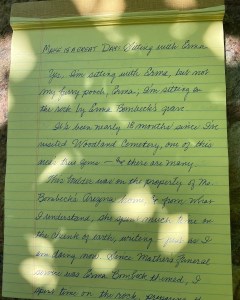 Make it a Great Day: Sitting with Erma
Yes, I'm sitting with Erma, but not
my furry pooch, Erma; I'm sitting on
the rock by Erma Bombeck's grave.
It's been nearly 18 months since I've
visited Woodland Cemetery, one of this
area's true gems - there are many.
This boulder was on the property of Ms.
Bombeck's Arizona home, and from what
I understand, she spent much time on
this chunk of earth, writing - just as I
am doing now. Since Mathers General
Store was Erma Bombeck themed, I
spent time on the rock, preparing